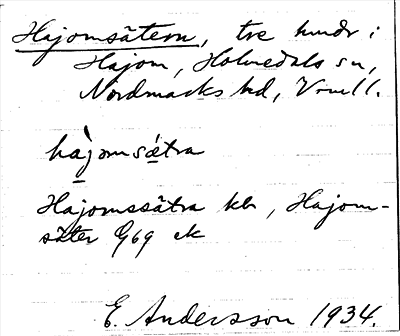 Hajomsätern, tre hundr i
Hajom, Holmedals sn,
Nordmarks hd, Vrmll.
hàjomsǽtra
Hajomssätra kb, Hajom-
säter G69 ek
E. Andersson 1934.